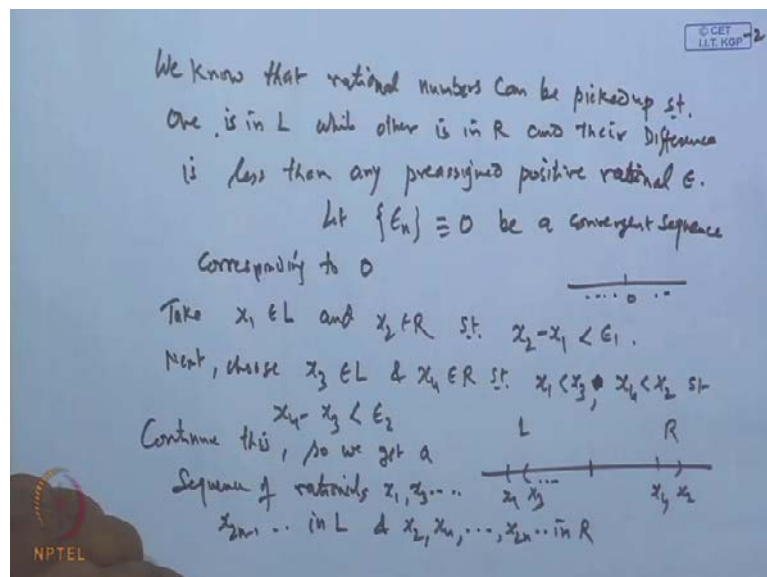 © CET
I.I.T. KGP
-2
We know that rational numbers can be pickedup st.
One is in L while other is in R and their Difference
is less than any preassigned positive rational ε.
Let {εn} ≡ 0 be a convergent sequence
Corresponding to 0
.... 0 ..
Take x₁ ∈ L and x₂ ∈ R st. x₂-x₁ < ε₁.
Next, choose x₃ ∈ L & x₄ ∈ R st. x₁<x₃, x₄<x₂ st
x₄- x₃ < ε₂
Continue this, so we get a
L R
Sequence of rationals x₁, x₃....
x₁ x₃ x₄ x₂
x₂ₙ₋₁ .. in L & x₂, x₄, ..., x₂ₙ.. in R
NPTEL